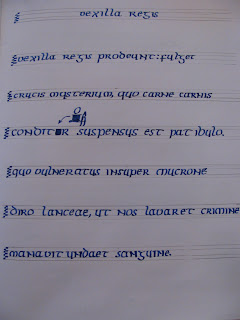 vexilla regis
vexilla regis prodeunt: fulget
crucis mysterium, quo carne carnis
conditor suspensus est patibulo.
quo vulneratus insuper mucrone
diro lanceae, ut nos lavaret crimine
manavit undaet sanguine.